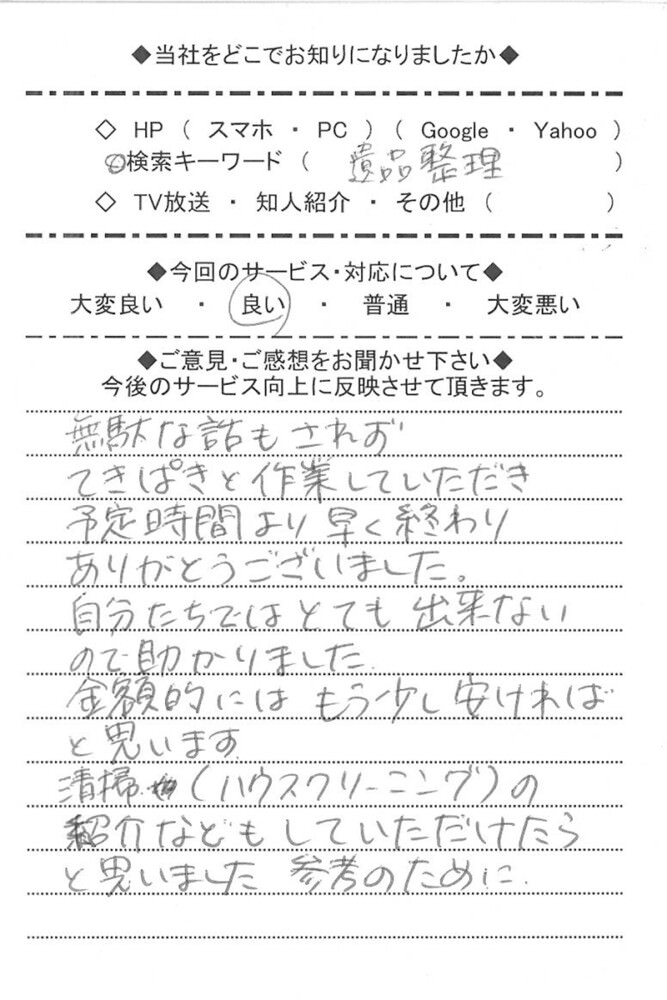 ◆当社をどこでお知りになりましたか◆
◇ HP ( スマホ ・ PC ) ( Google ・ Yahoo )
◇検索キーワード ( 遺品整理 )
◇ TV放送 ・ 知人紹介 ・ その他 ( )
◆今回のサービス・対応について◆
大変良い ・ 良い ・ 普通 ・ 大変悪い
◆ご意見・ご感想をお聞かせ下さい◆
今後のサービス向上に反映させて頂きます。
無駄な話もされず
てきぱきと作業していただき
予定時間より早く終わり
ありがとうございました。
自分たちではとても出来ない
ので助かりました.
金額的にはもう少し安ければ
と思います
清掃(ハウスクリーニング)の
紹介などもしていただけたら
と思いました 参考のために.